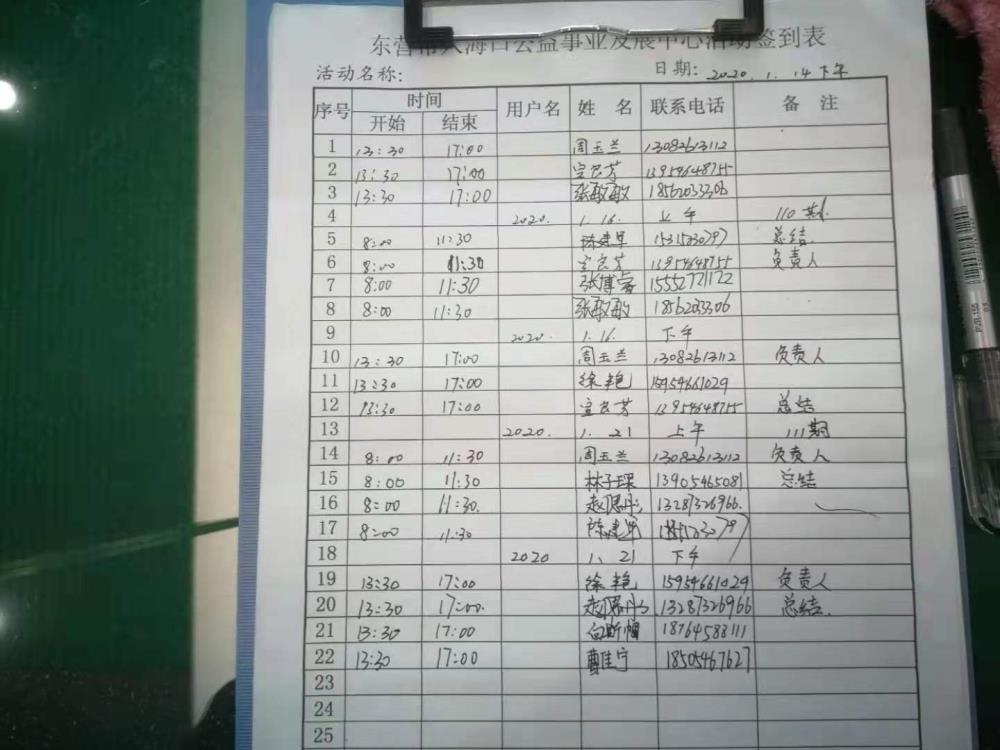 东营市入海口公益事业发展中心活动签到表
活动名称: 日期: 2020.1.14下午
序号 时间 用户名 姓 名 联系电话 备 注
开始 结束
1 13:30 17:00 周玉兰 13082613112
2 13:30 17:00 宣良芳 13954648755
3 13:30 17:00 张敏敏 18562033306
4 2020. 1.16. 上午 110期
5 8:00 11:30 陈建军 15315230797 总结
6 8:00 11:30 宣良芳 13954648755 负责人
7 8:00 11:30 张博 15552721122
8 8:00 11:30 张敏敏 18562033306
9 2020. 1.16. 下午
10 13:30 17:00 周玉兰 13082613112 负责人
11 13:30 17:00 徐艳 15954661029
12 13:30 17:00 宣良芳 13954648755 总结
13 2020. 1.21 上午 111期
14 8:00 11:30 周玉兰 13082613112 负责人
15 8:00 11:30 林子琛 13905465081 总结
16 8:00 11:30. 赵恩彤 13287326966.
17 8:00 11:30 陈建军
18 2020 1.21 下午
19 13:30 17:00 徐艳 15954661029 负责人
20 13:30 17:00. 赵恩彤 13287326966 总结.
21 13:30 17:00 18764588111
22 13:30 17:00 曹佳宁 18505467627
23
24
25